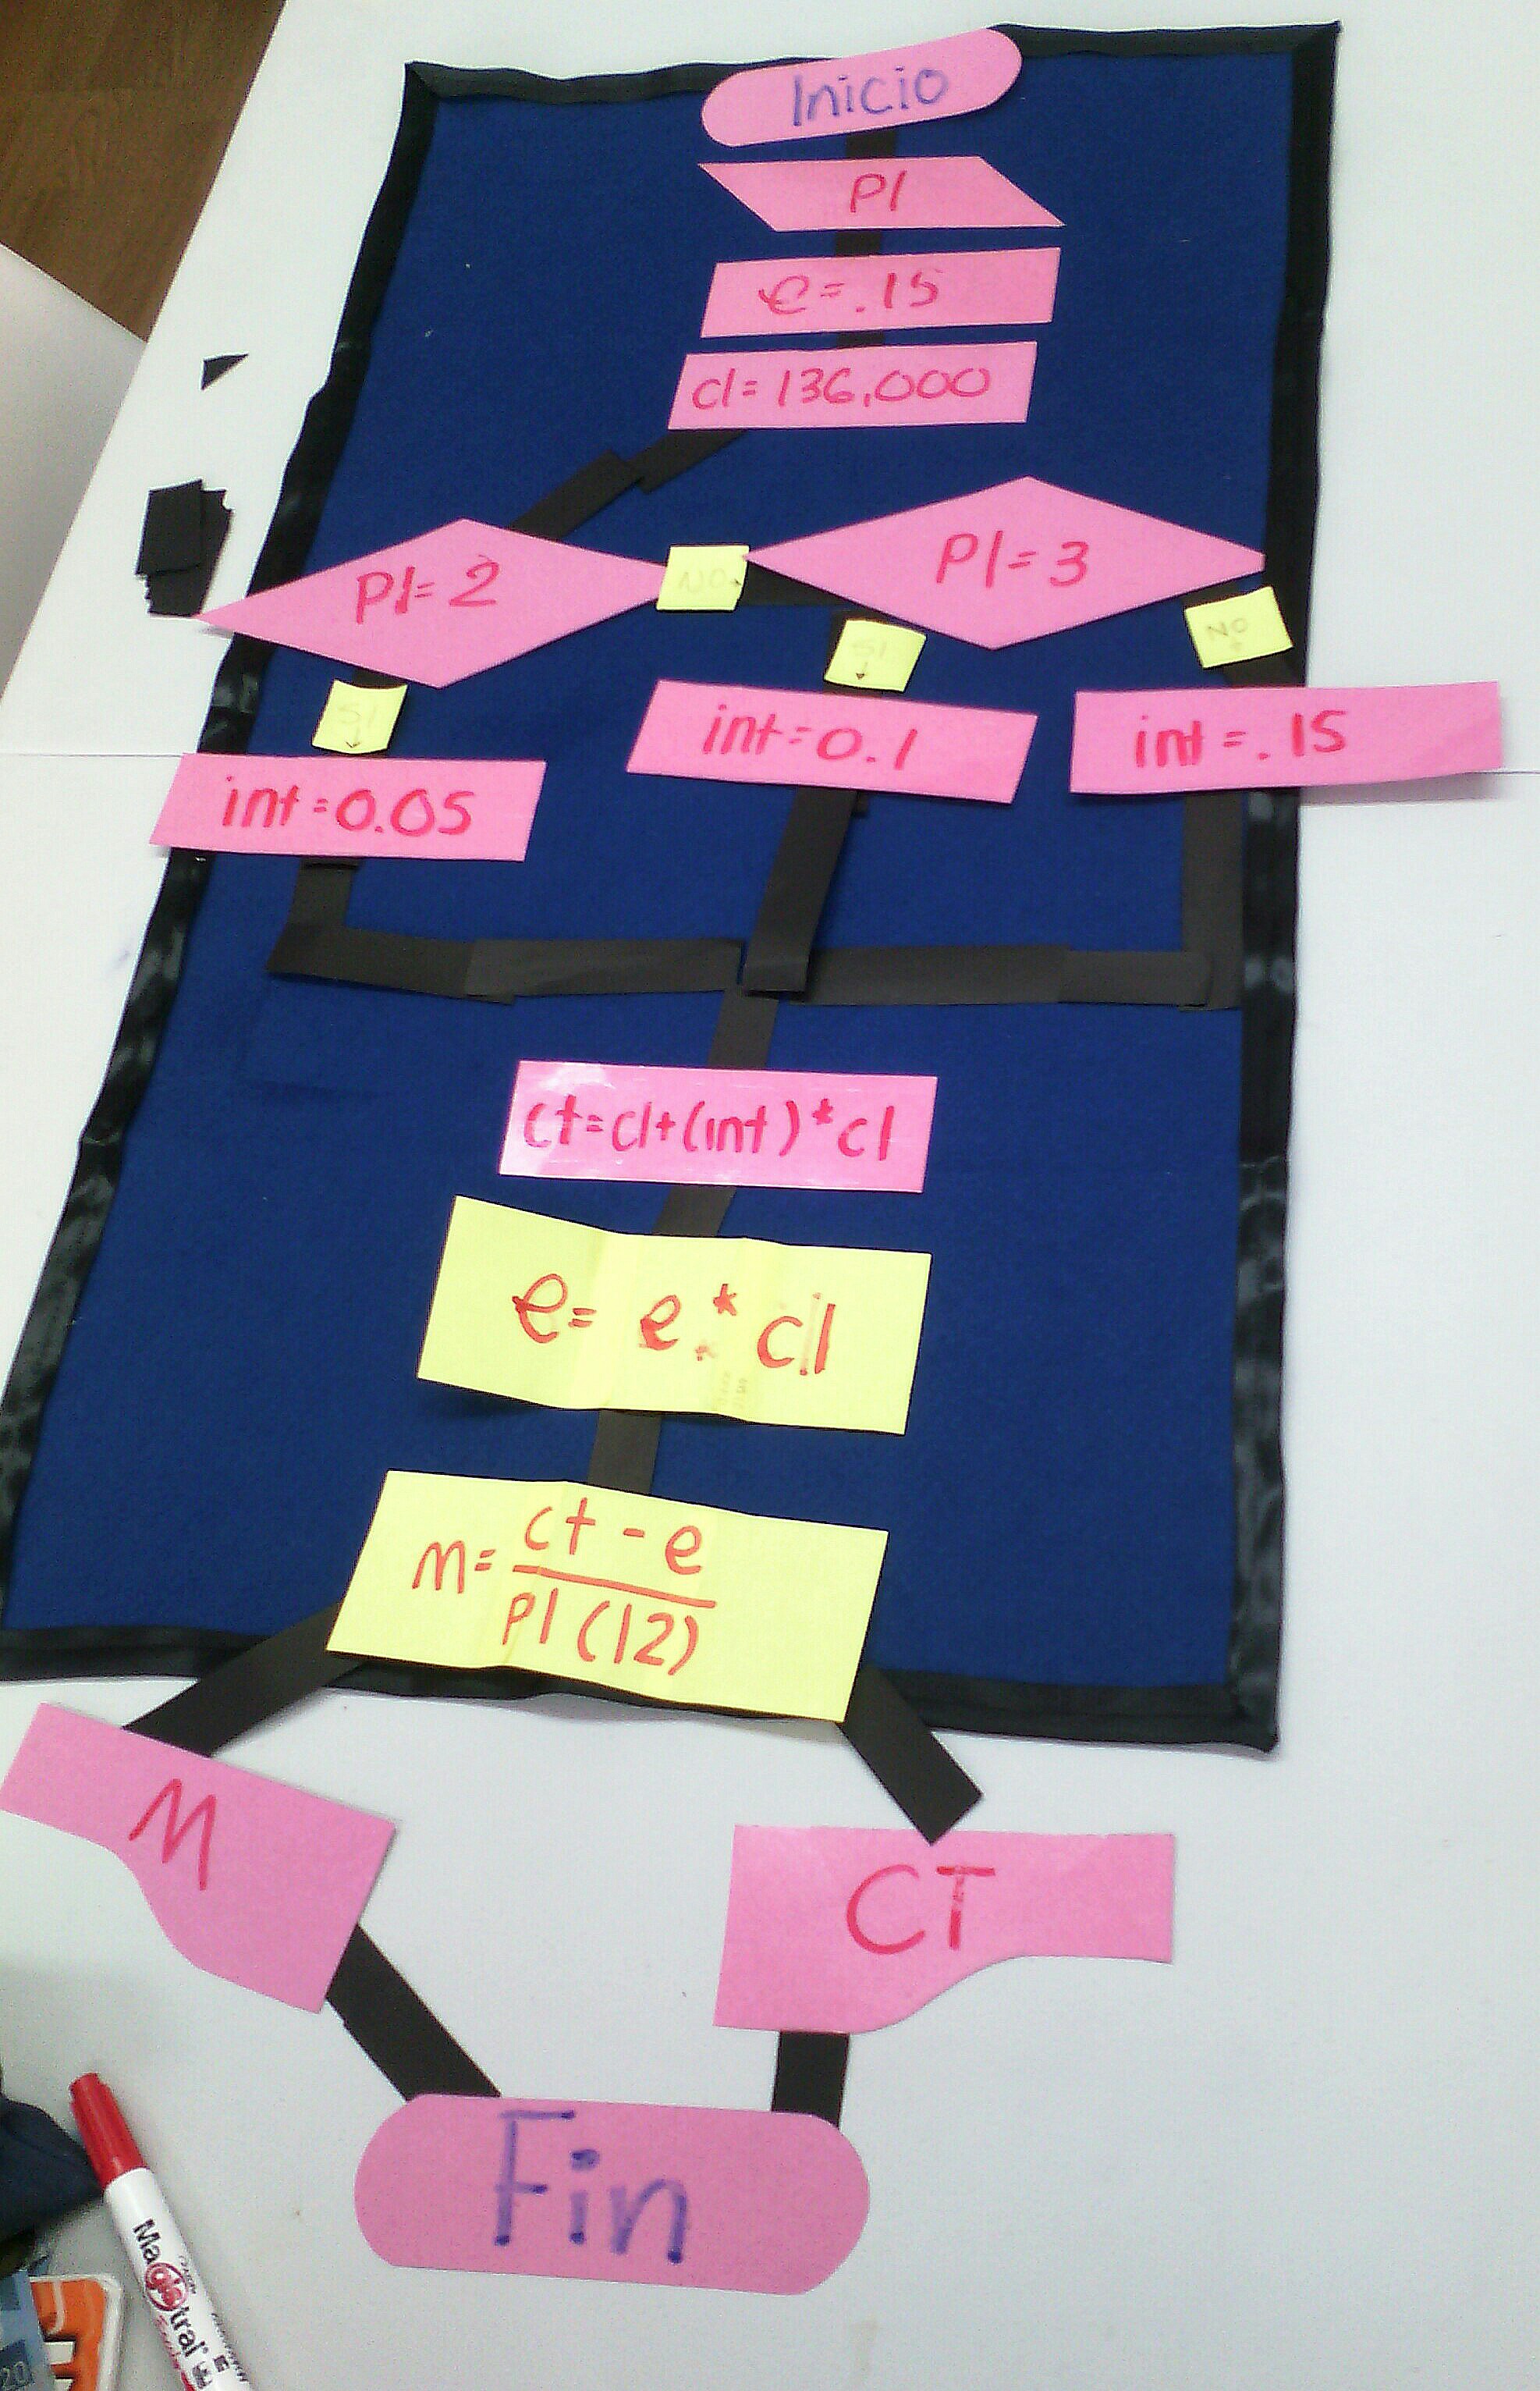 Inicio
Pl
e=.15
cl=136,000
Pl=2
NO
Pl=3
SI
NO
SI
int=0.1
int=.15
int=0.05
ct=cl+(int)*cl
e= e.* cl
m= ct - e
pl (12)
M
CT
Fin
Magistral
20